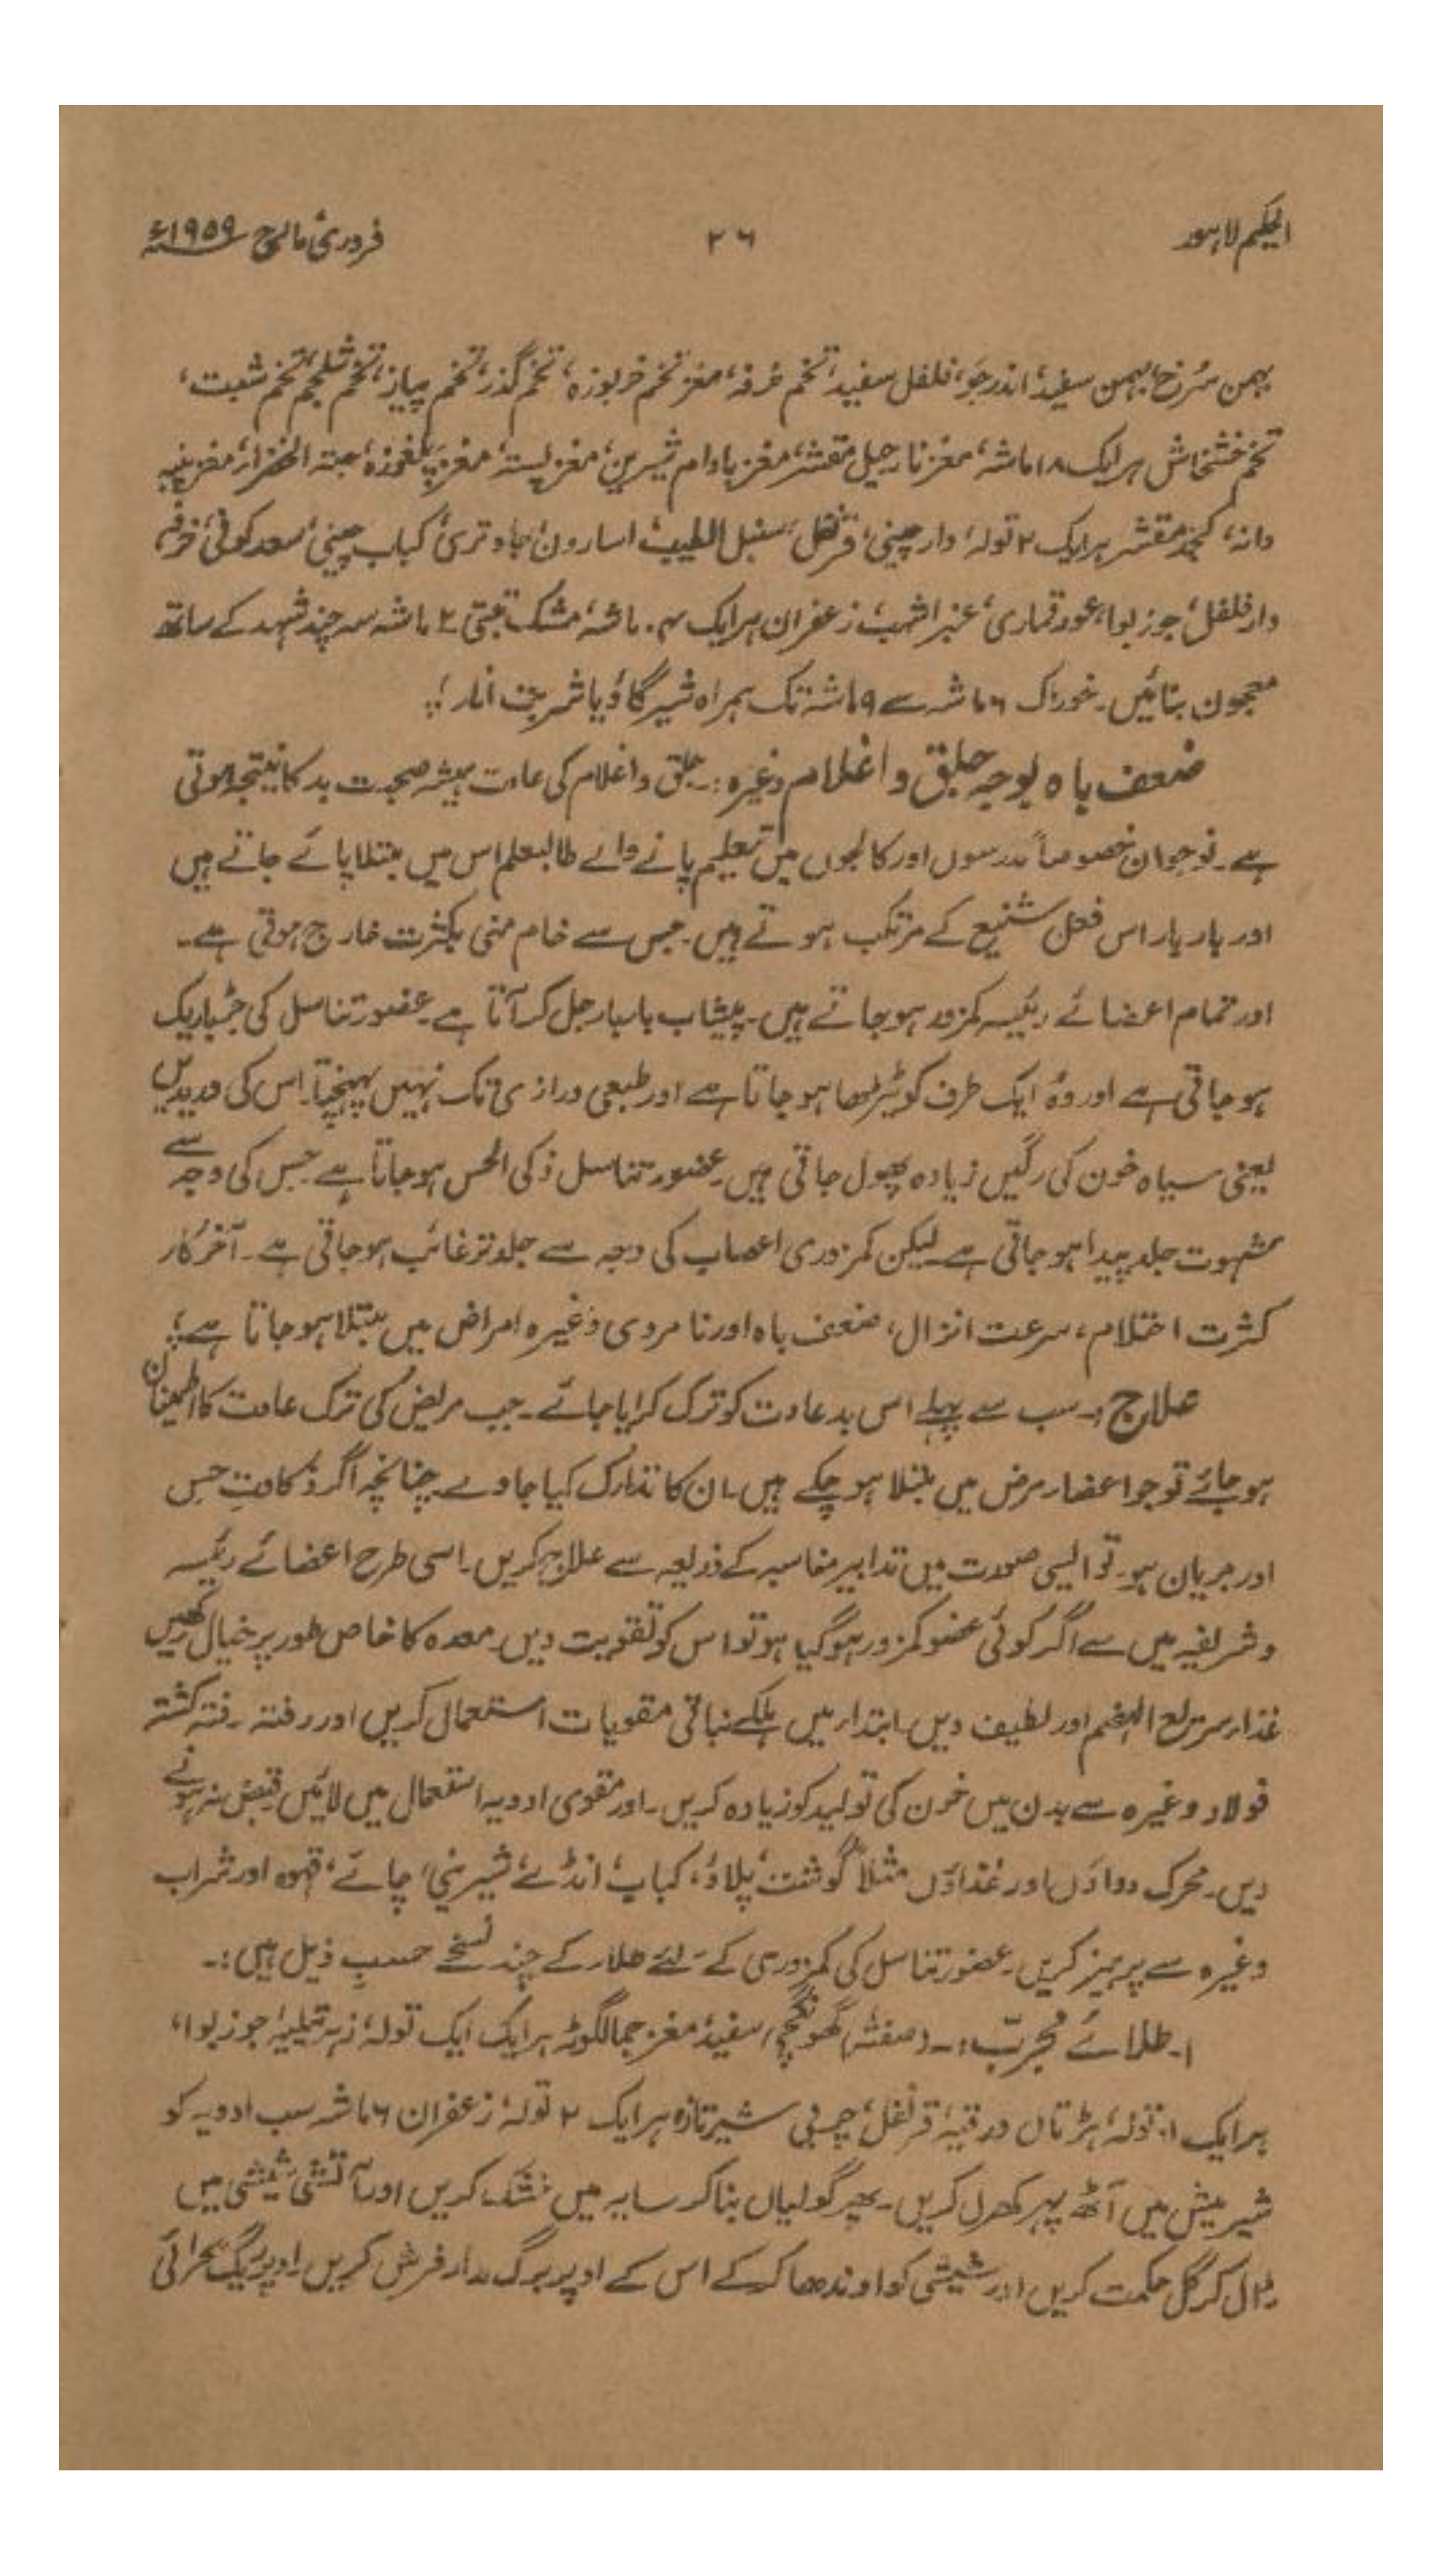 الحکیم لاہور
۲۶
فروری، مارچ ۱۹۵۹ء
بہمن سُرخ، بہمن سفید، اندرجَو، فلفل سفید، تخم خرفہ، مغز تخم خربوزہ، تخم گذر، تخم پیاز، تخم شلجم، تخم شبت،
تخم خشخاش ہر ایک ۱۸ ماشہ، مغز نارجیل مقشر، مغز بادام شیریں، مغز پستہ، مغز چلغوزہ، حبتہ الخضراء، مغز پنبہ
دانہ، کنجد مقشر ہر ایک ۲ تولہ، دارچینی، قرنفل، سنبل الطیب، اسارون، جاوتری، کباب چینی، سعد کوفی، خرفہ،
دارفلفل، جوزبوا، عود قماری، عنبر اشہب، زعفران ہر ایک ماشہ، مشک تبتی ۲ ماشہ سہ چند شہد کے ساتھ
معجون بنائیں۔ خوراک ۶ ماشہ سے ۹ ماشہ تک ہمراہ شیر گاؤ یا شربت انار؛
ضعف باہ بوجہ جلق و اغلام وغیرہ:۔ جلق و اغلام کی عادت ہمیشہ صحبت بد کا نتیجہ ہوتی
ہے۔ نوجوان خصوصاً مدرسوں اور کالجوں میں تعلیم پانے والے طالبعلم اس میں مبتلا پائے جاتے ہیں
اور بار بار اس فعل شنیع کے مرتکب ہوتے ہیں۔ جس سے خام منی بکثرت خارج ہوتی ہے۔
اور تمام اعضائے رئیسہ کمزور ہو جاتے ہیں۔ پیشاب بار بار جل کر آتا ہے۔ عضو تناسل کی جڑ باریک
ہو جاتی ہے اور وہ ایک طرف کو ٹیڑھا ہو جاتا ہے اور طبعی درازی تک نہیں پہنچتا۔ اس کی وریدیں
یعنی سیاہ خون کی رگیں زیادہ پھول جاتی ہیں۔ عضو تناسل ذکی الحس ہو جاتا ہے جس کی وجہ سے
شہوت جلد پیدا ہو جاتی ہے لیکن کمزوری اعصاب کی وجہ سے جلد تر غائب ہو جاتی ہے۔ آخر کار
کثرت احتلام، سرعت انزال، ضعف باہ اور نامردی وغیرہ امراض میں مبتلا ہو جاتا ہے؛
علاج:۔ سب سے پہلے اس بد عادت کو ترک کرایا جائے۔ جب مریض کی ترک عادت کا اطمینان
ہو جائے تو جو اعضاء مرض میں مبتلا ہو چکے ہیں۔ ان کا تدارک کیا جاوے۔ چنانچہ اگر ذکاوتِ حِس
اور جریان ہو۔ تو ایسی صورت میں تدابیر مناسبہ کے ذریعہ سے علاج کریں۔ اسی طرح اعضائے رئیسہ
و شریفہ میں سے اگر کوئی عضو کمزور ہو گیا ہو تو اس کو تقویت دیں۔ معدہ کا خاص طور پر خیال رکھیں
غذا سریع الہضم اور لطیف دیں۔ ابتداء میں ہلکے نباتی مقویات استعمال کریں اور رفتہ رفتہ کشتہ
فولاد وغیرہ سے بدن میں خون کی تولید کو زیادہ کریں۔ اور مقوی ادویہ استعمال میں لائیں قبض نہ ہونے
دیں۔ محرک دواؤں اور غذاؤں مثلاً گوشت، پلاؤ، کباب، انڈے، شیرینی، چائے، قہوہ اور شراب
وغیرہ سے پرہیز کریں۔ عضو تناسل کی کمزوری کے لئے طلاء کے چند نسخے حسبِ ذیل ہیں:۔
۱۔ طلائے مجرّب:۔ (صفتہ) گھونگچی سفید، مغز جمالگوٹہ ہر ایک ایک تولہ، جوزبوا،
ہر ایک تولہ، ہڑتال ورقیہ، قرنفل، چربی شیر تازہ ہر ایک ۲ تولہ، زعفران ۶ ماشہ سب ادویہ کو
شیر میش میں آٹھ پہر کھرل کریں۔ پھر گولیاں بنا کر سایہ میں خشک کریں اور آتشی شیشی میں
ڈال کر گل حکمت کریں اور شیشی کو اوندھا کر کے اس کے اوپر برگ مدار فرش کریں۔ اوپر ریگ صحرائی